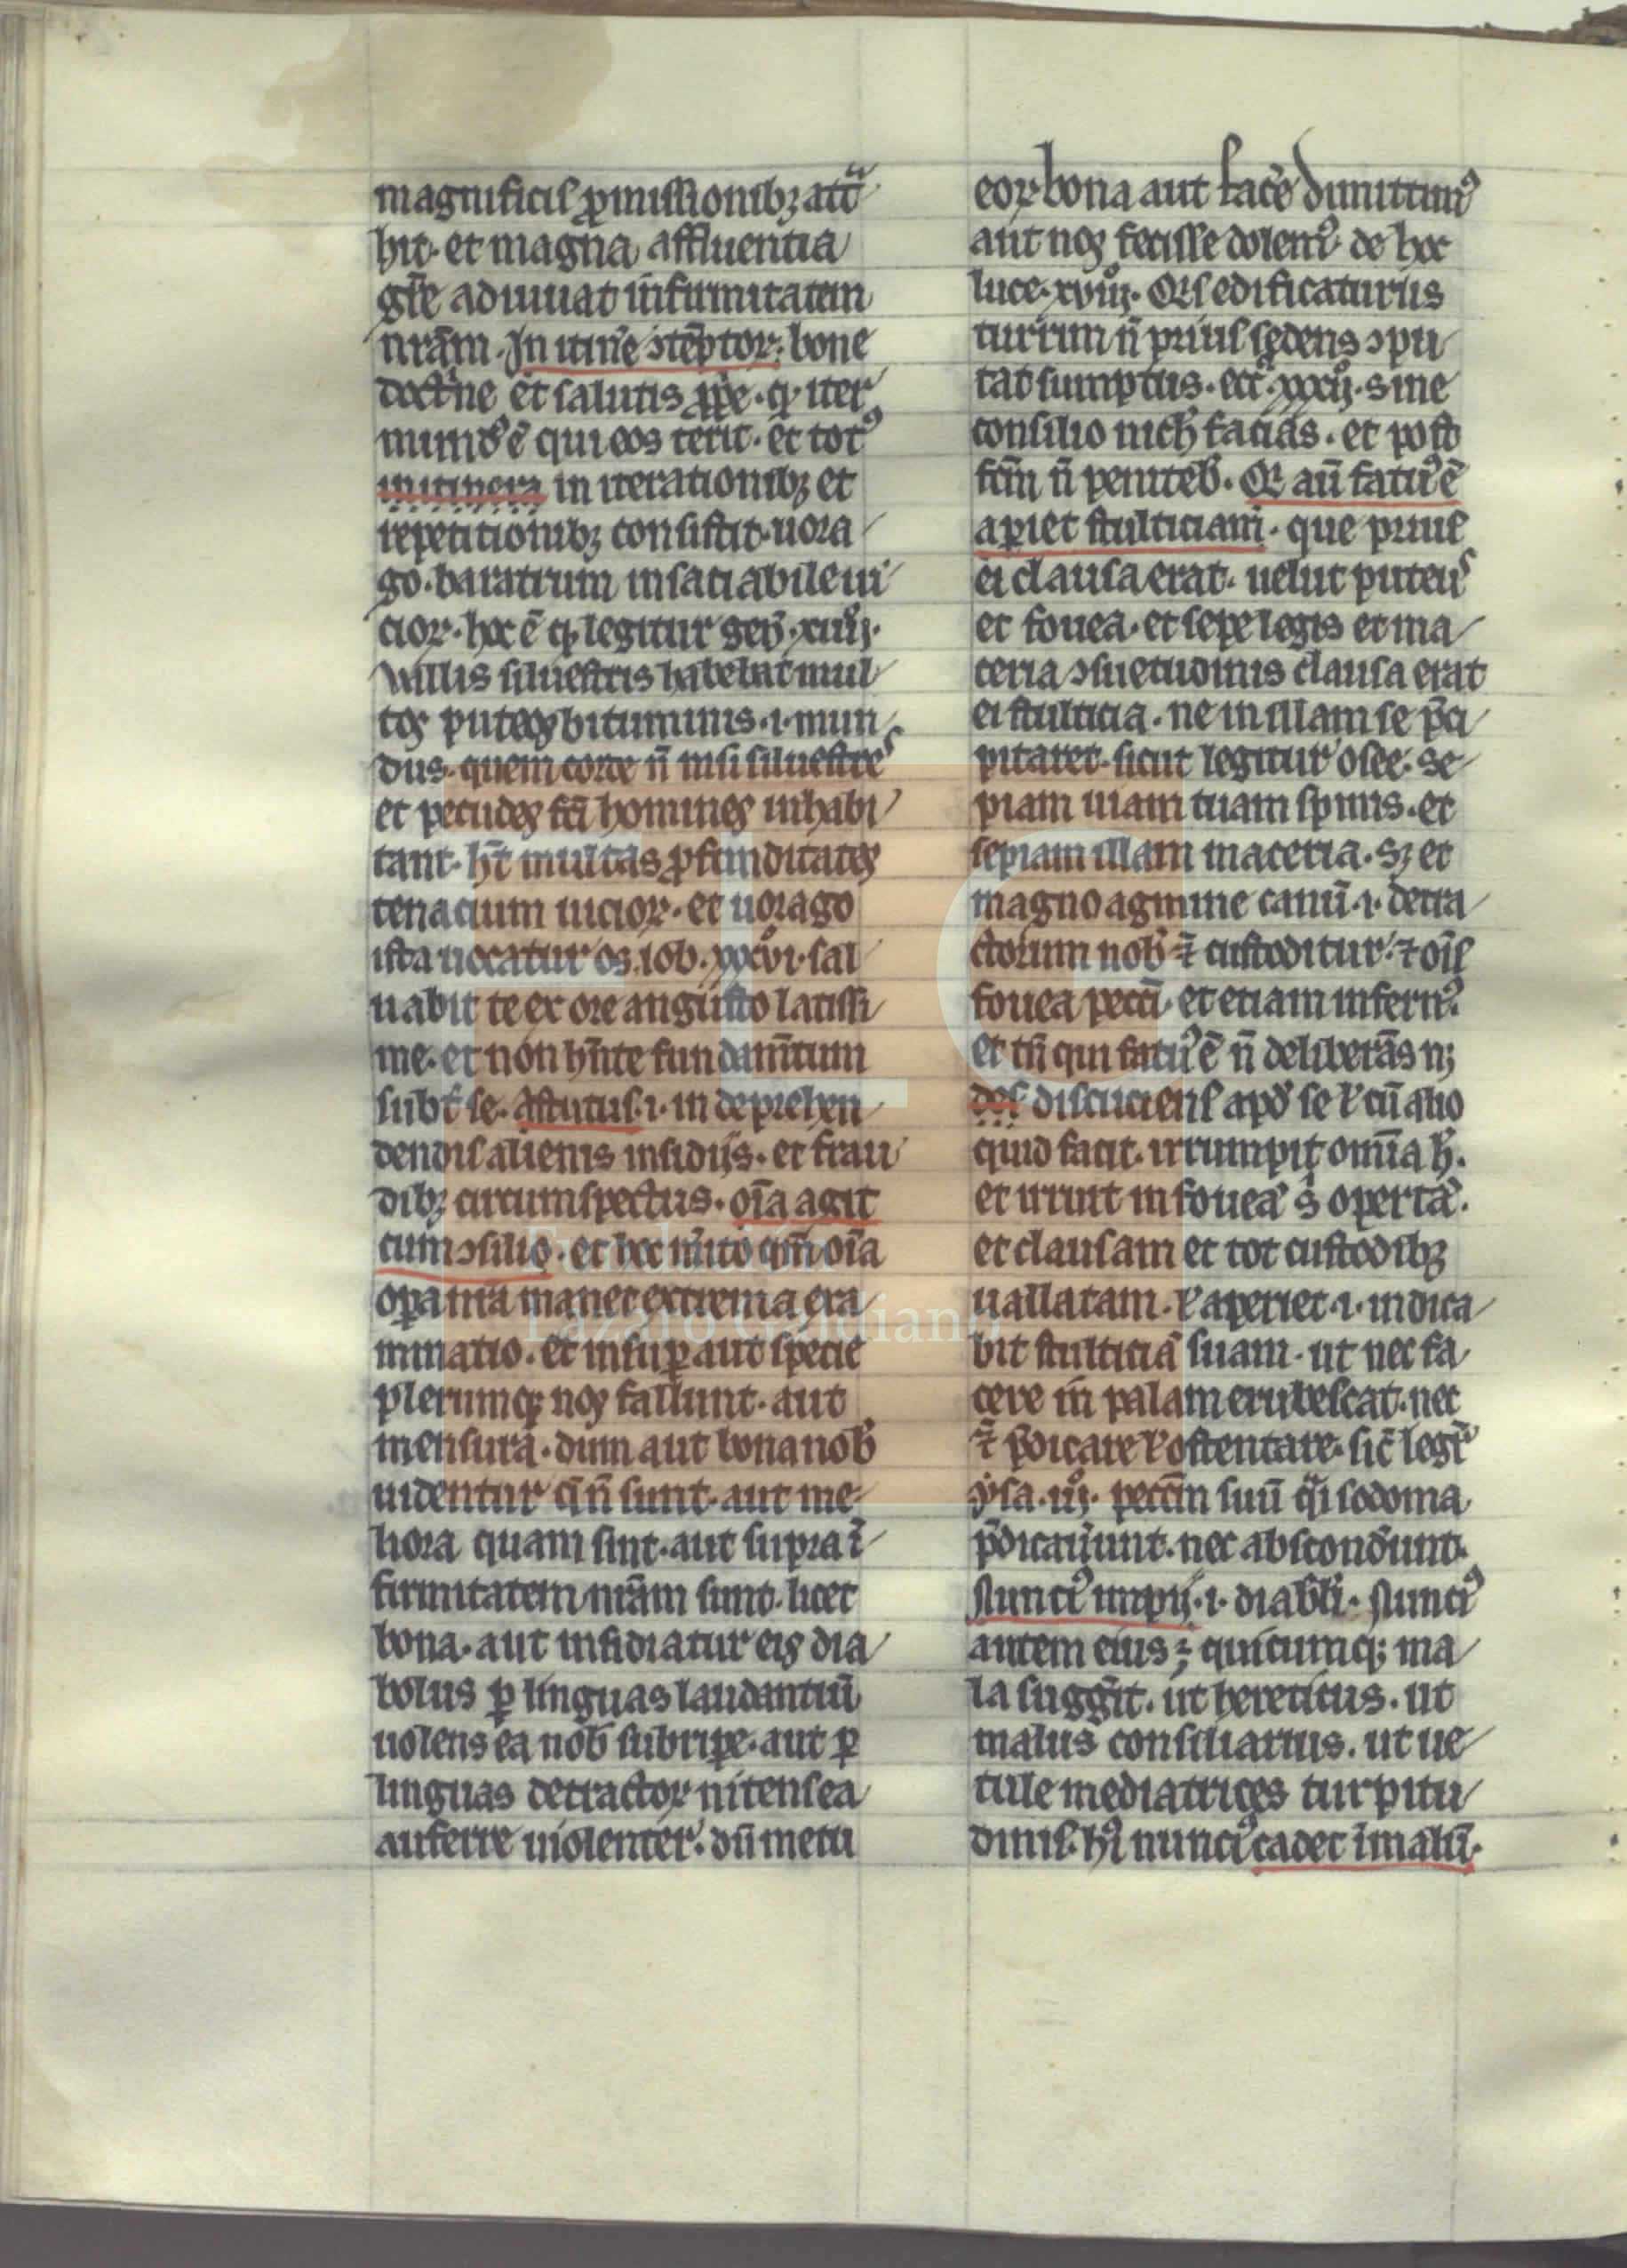 magnificis ꝓmissionibꝫ att͞u
hit· et magna affluentia
gr̃e adiuuat infirmitatem
nr̃am. In itin̾e ↄtēptoꝝ· bone
doct͛ne et salutis ꝓp̱e· qͥ iter
mund᷒ ē qui eos terit· et tot᷒
in itinera in iterationibꝫ et
repetitionibꝫ consistit· uora
go· baratrum insatiabile ui
cioꝝ· hoc ē qͥ legitur gen̄· xiiij·
Vallis siluestris habebat mul
tos puteos bituminis .i. mun
dus· quem corde n̄ nisi siluestres
et pecudes fc̄i homines inhabi
tant· hn̄t multas ꝓfunditates
tenacium uicioꝝ· et uorago
ista uocatur os· iob· xxxvi· sal
uabit te ex ore angusto latissi
me· et non hn̄te fundam̄tum
subt̾ se· Astutus .i. in deprehen
dendis alienis insidijs· et frau
dibꝫ circumspectus· oīa agit
cum ↄsilio· et hoc m̄ito qm̄ oīa
oꝑa nr̄a manet extrema exa
minatio· et insuꝑ aut specie
plerumqꝫ nos fallunt· aut
mensura· dum aut bona nob̾
uidentur q̄ n̄ sunt· aut me
liora quam sint· aut supra ī
firmitatem nr̄am sunt· licet
bona· aut insidiatur eis dia
bolus ꝑ linguas laudantiū
uolens ea nob̾ subriꝑe· aut ꝑ
linguas detractoꝝ nitens ea
auferre uiolenter· dū metu
eoꝝ bona aut fac̾e dimittim᷒
aut nos fecisse dolem᷒· de hoc
luce· xviij· Qͥs edificaturus
turrim n̄ prius sedens ↄpu
tat sumptus· ecc̾· xxxij· Sine
consilio nich̾ facias· et post
fc̄m n̄ peniteb̾· Qͥ aū fatu᷒ ē
aꝑiet stulticiam· que prius
ei clausa erat· uelut puteus
et fouea· et sepe legis et ma
ceria ↄsuetudinis clausa erat
ei stulticia· ne in illam se p̄ci
pitaret· sicut legitur osee· Se
piam uiam tuam spinis· et
sepiam illam maceria· Sꝫ et
magno agmine canū .i. detra
ctorum nob̾ ⁊̄ custoditur· ⁊ oīs
fouea pecc̄i· et etiam infern᷒·
et tn̄ qui fatu᷒ ē n̄ deliberās nꝫ
des discuciens apd̾ se ł cū alio
quid facit· irrumpit omīa h̾·
et irruit in foueā s̄ opertā·
et clausam et tot custodibꝫ
uallatam· ł aperiet .i. indica
bit stulticiā suam· ut nec fa
cere in palam erubescat· nec
⁊̄ p̄dicare ł ostentare· sic̄ legit̾
ysa· iij· pecc̄m suū qͣi sodoma
p̄dicauer̾unt· nec abscond̾unt·
Nunci᷒ impij .i. diaboli· Nunci᷒
autem eius ē quicumqꝫ ma
la sugger̾it· ut hereticus· ut
malus consiliarius· ut ue
tule mediatrices turpitu
dinis· hͥ nunci᷒ cadet ī malū·